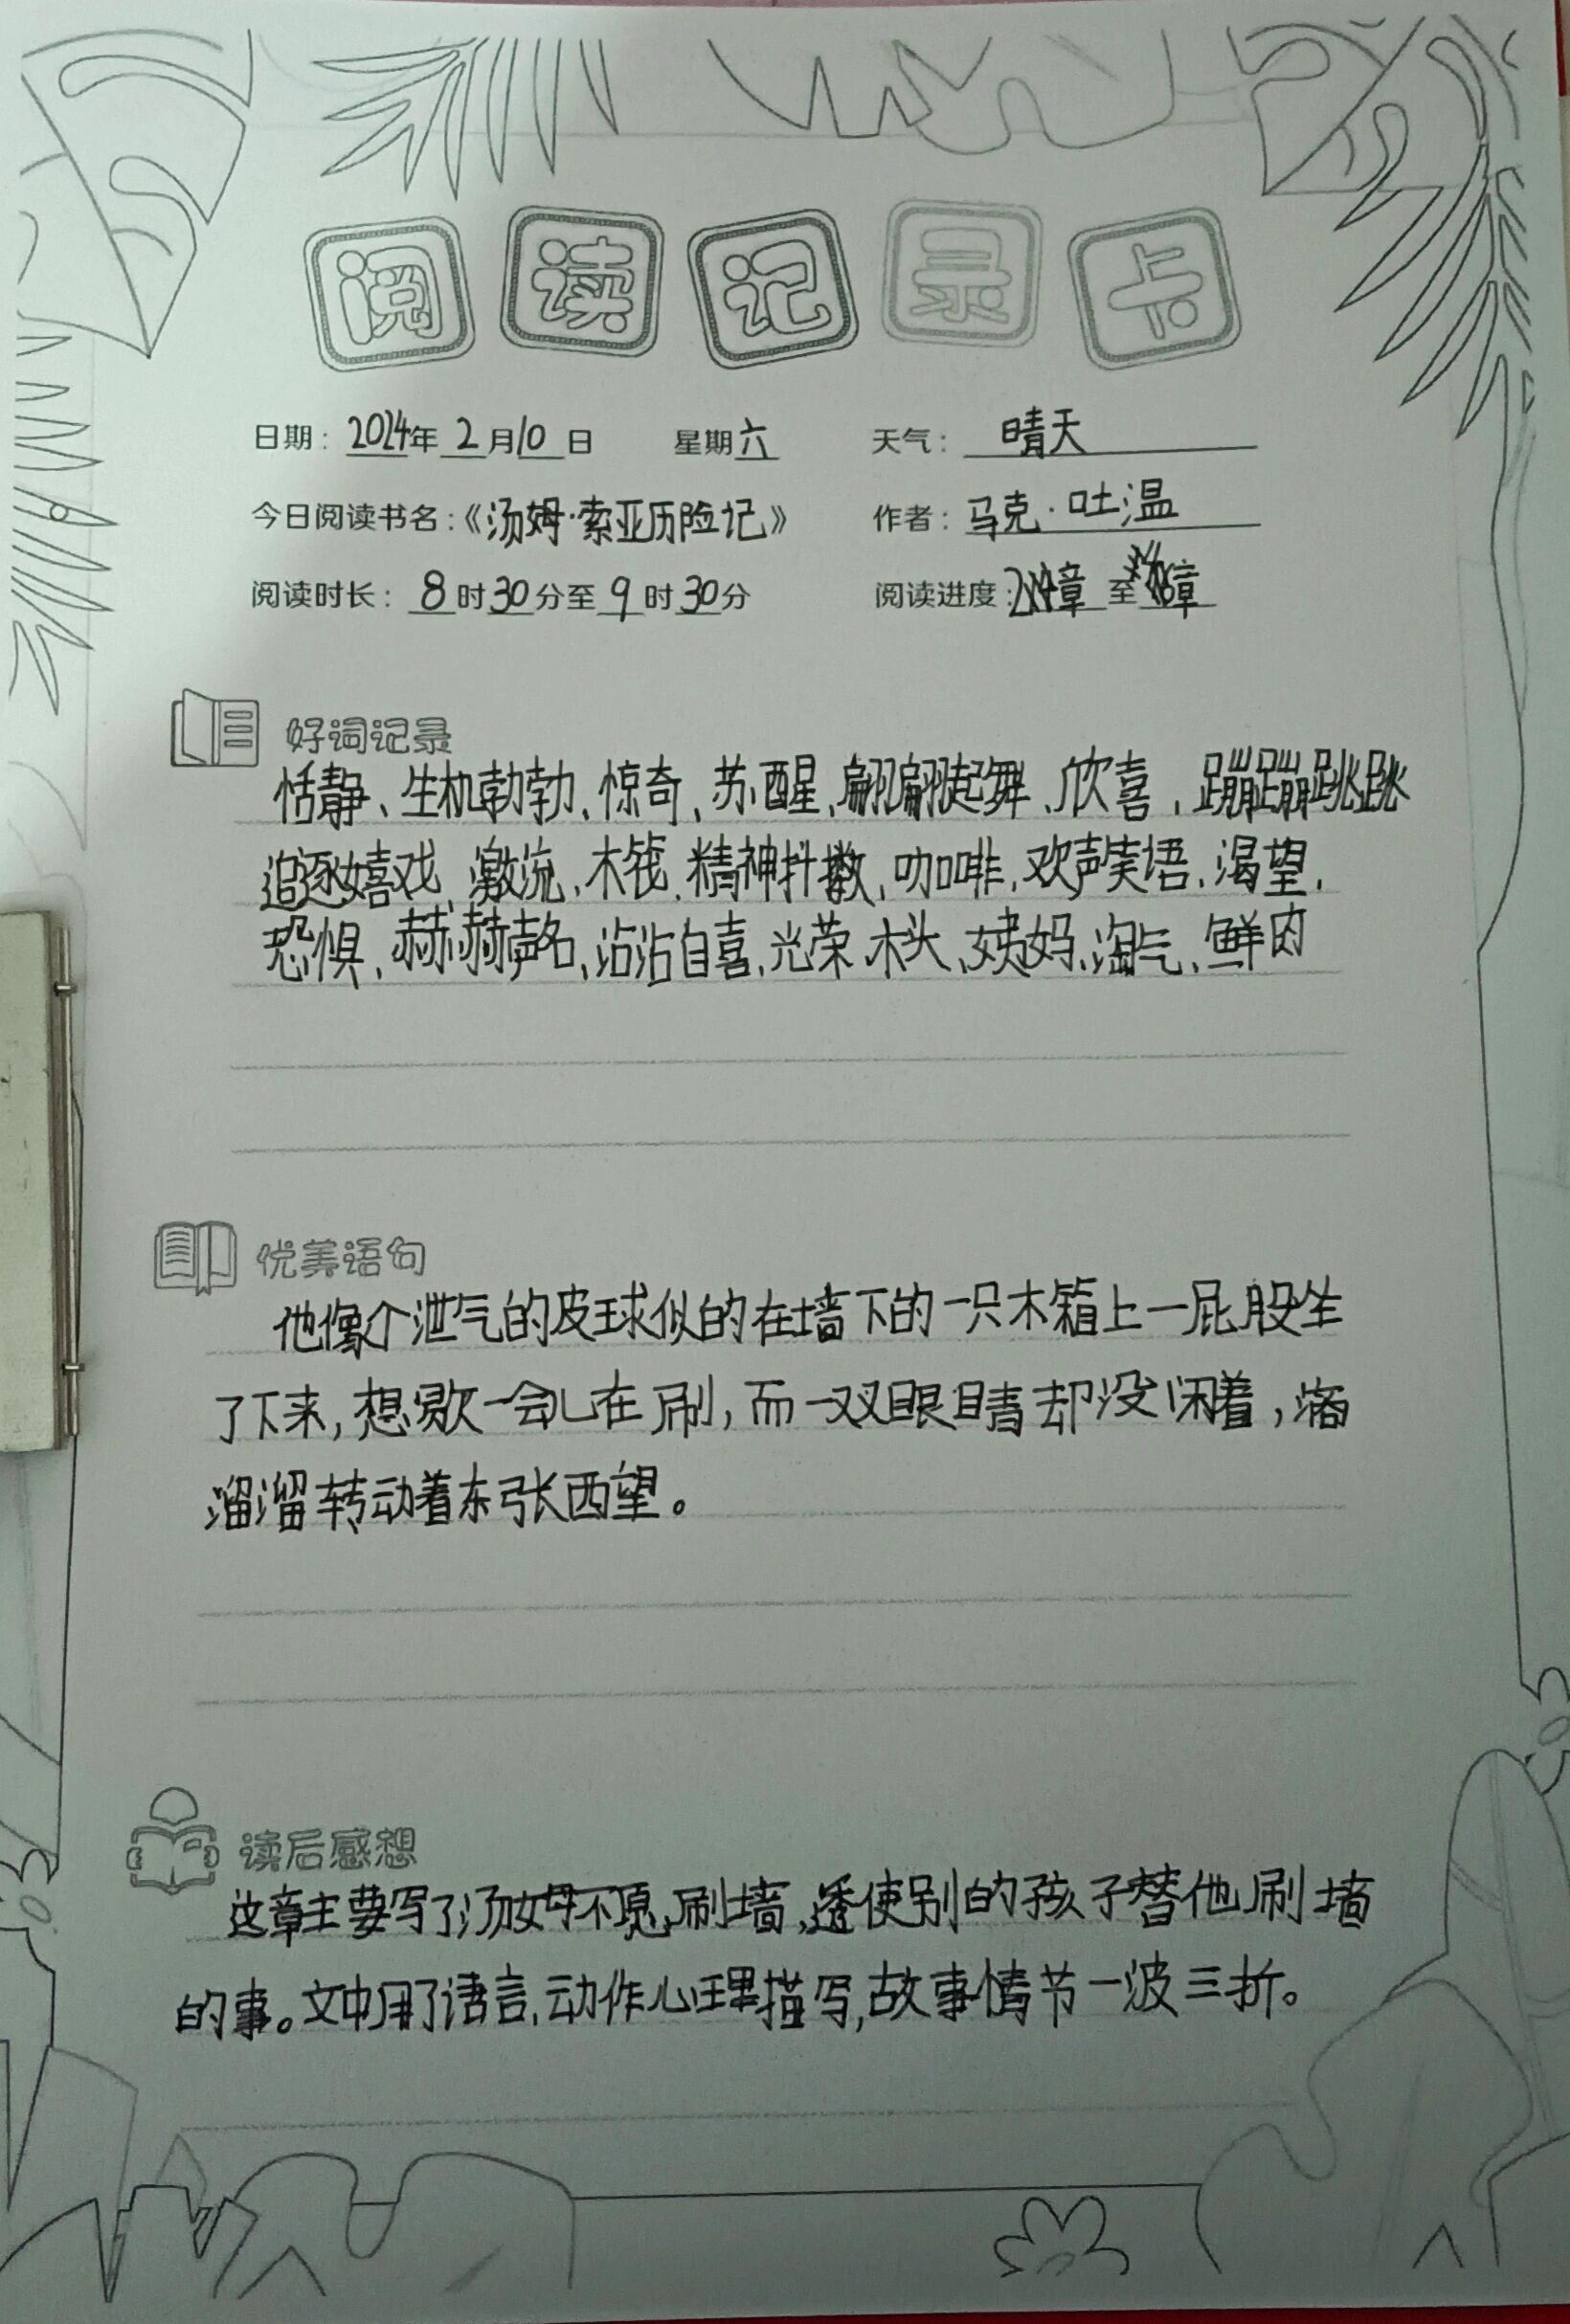 阅读记录卡
日期：2024年 2月10日 星期六 天气：晴天
今日阅读书名：《汤姆·索亚历险记》 作者：马克·吐温
阅读时长：8时30分至9时30分 阅读进度：章至章
好词记录
恬静、生机勃勃、惊奇、苏醒、翩翩起舞、欣喜、蹦蹦跳跳
追逐嬉戏、激流、木筏、精神抖擞、咖啡、欢声笑语、渴望、
恐惧、赫赫声名、沾沾自喜、光荣、木头、姨妈、淘气、鲜肉
优美语句
他像个泄气的皮球似的在墙下的一只木箱上一屁股坐
了下来，想歇一会儿在刷，而一双眼睛却没闲着，
溜溜转动着东张西望。
读后感想
这章主要写了汤姆不愿刷墙，使别的孩子替他刷墙
的事。文中用了语言，动作心理描写，故事情节一波三折。